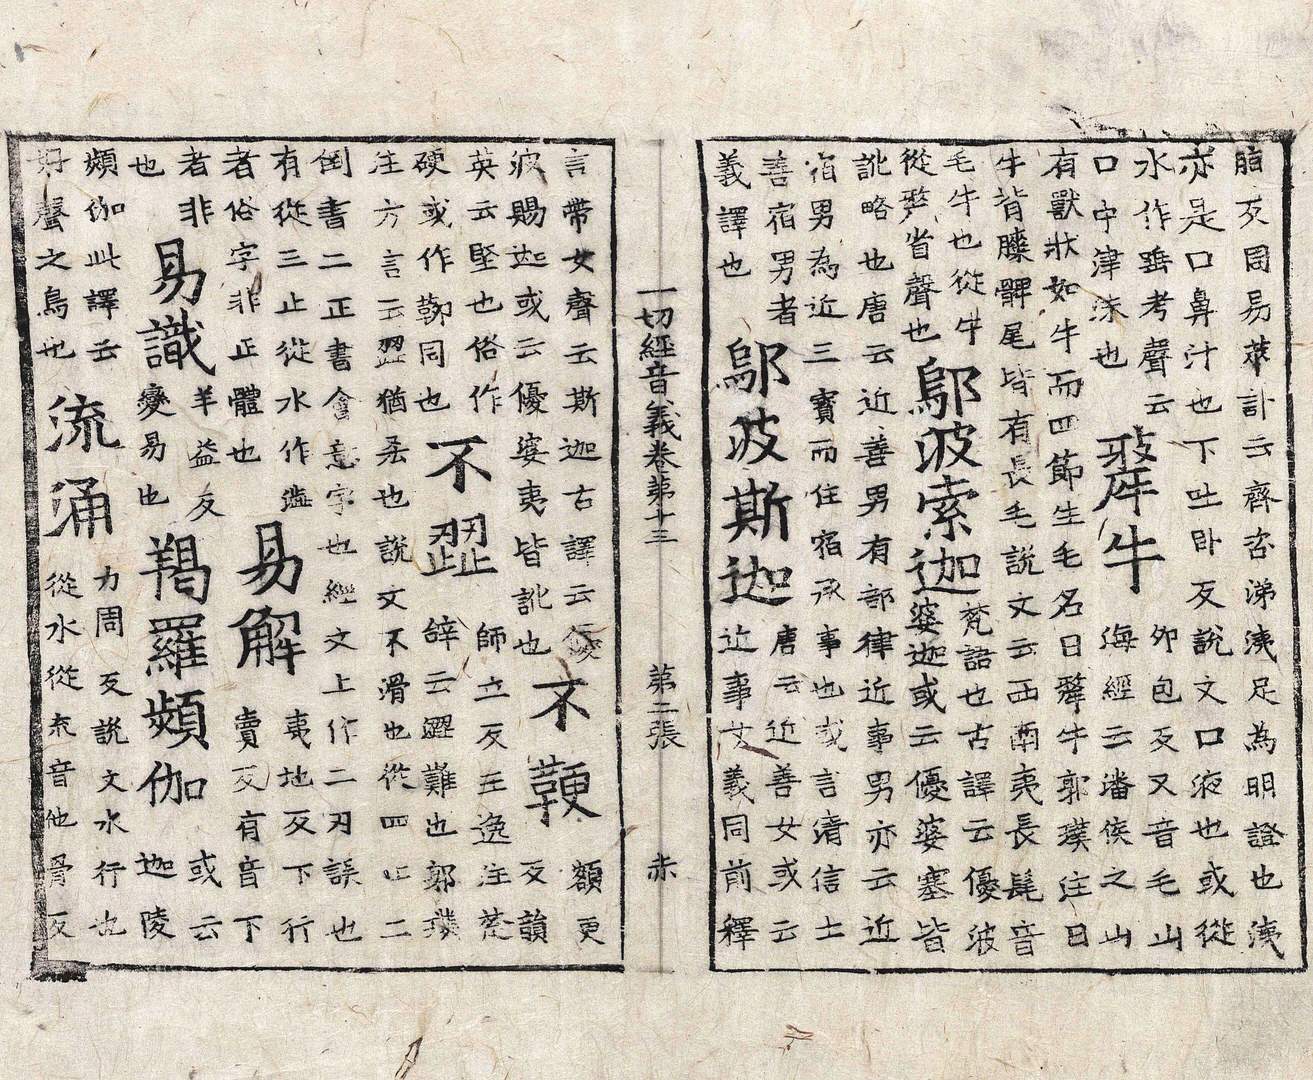 脂反周易萃卦云齎咨涕洟足為明證也洟
亦是口鼻汁也下吐卧反說文口液也或從
水作埀考聲云
口中津沫也
犛牛
卯包反又音毛山
海經云潘侯之山
有獸狀如牛而四節生毛名曰犛牛郭璞注曰
牛背膝髀尾皆有長毛說文云西南夷長髦音
毛牛也從牛
從𠩺省聲也
鄔波索迦
梵語也古譯云優波
婆迦或云優婆塞皆
訛略也唐云近善男有部律近事男亦云近
宿男為近三寶而住宿承事也或言清信士
善宿男者
義譯也
鄔波斯迦
唐云近善女或云
近事女義同前釋
一切經音義卷第十三 第二張 赤
言帶女聲云斯迦古譯云優
波賜迦或云優婆夷皆訛也
不鞕
額更
反韻
英云堅也俗作
硬或作䩕同也
不歰
師立反王逸注楚
辝云澀難也郭璞
注方言云澀猶悋也說文不滑也從四止二
倒書二正書會意字也經文上作二刃誤也
有從三止從水作澁
者俗字非正體也
易解
夷地反下行
賣反有音下
者非
也
易識
羊益反
變易也
羯羅頻伽
或云
迦陵
頻伽此譯云
好聲之鳥也
流涌
力周反說文水行也
從水從㐬音他骨反